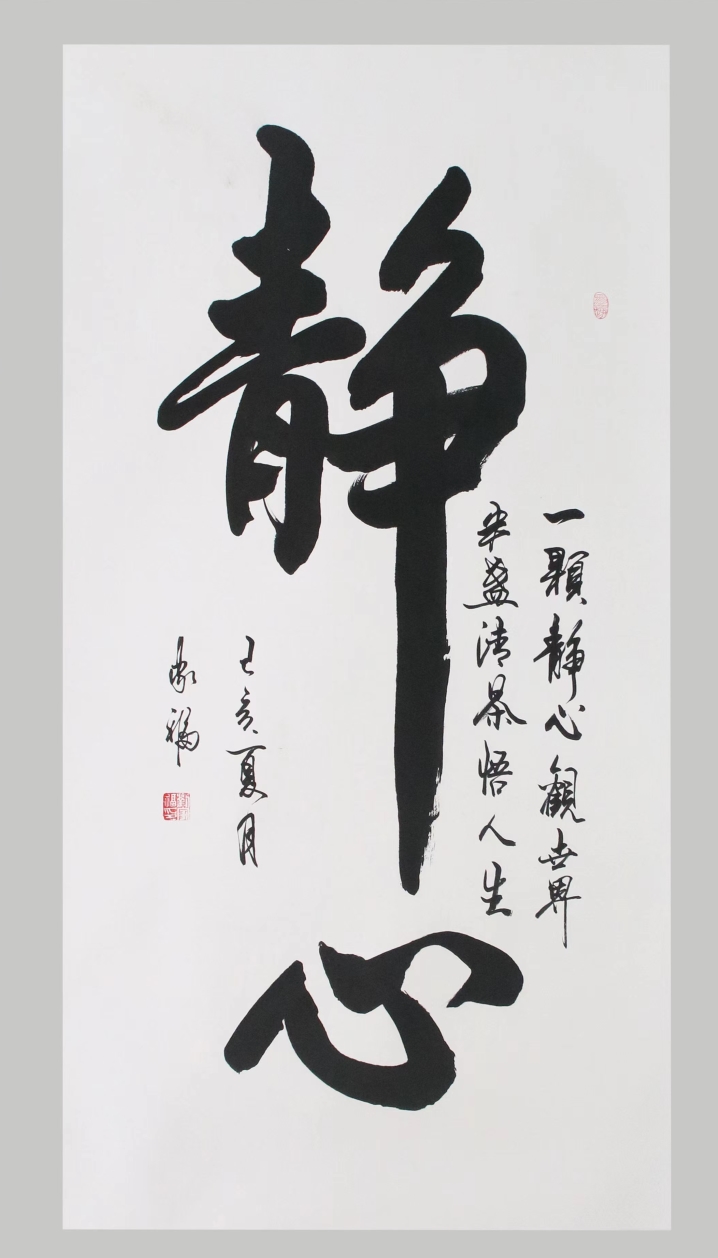 静心
一顆静心觀世界
半盞清茶悟人生
己亥夏月
家福